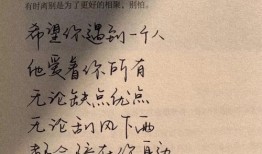 有时离别是为了更好的相聚，别怕。
希望你遇到一个人
他爱着你所有
无论缺点优点
无论刮风下雨
都会陪在你身边